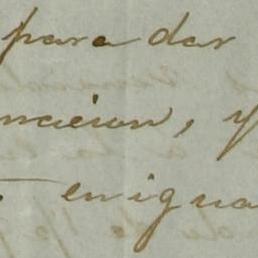 para dar
nacion, y
en igua